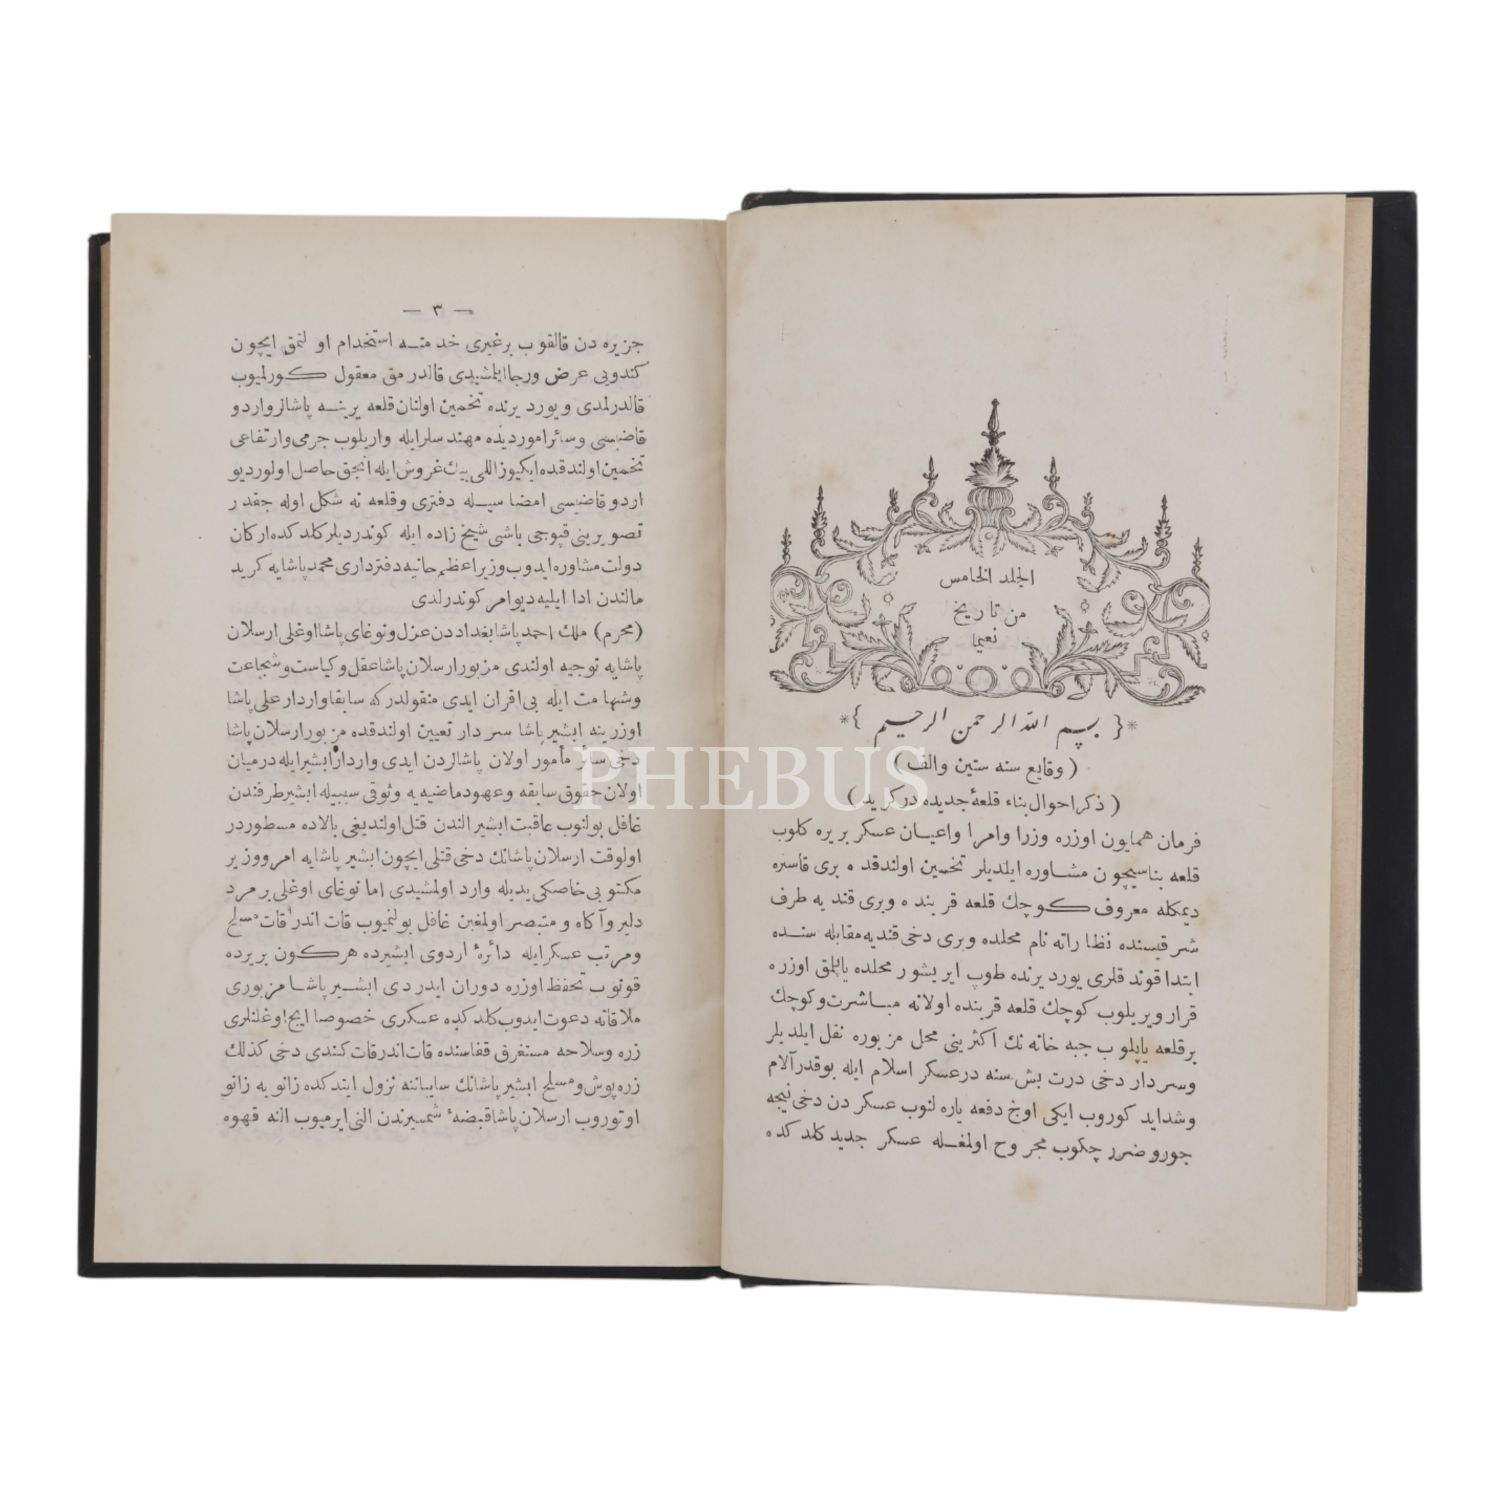 الجلد الخامس
من تاريخ
نعيما
*{ بسم الله الرحمن الرحيم }*
( وقايع سنه ستين والف )
( ذكر احوال بناء قلعهٔ جديده در كريد )
فرمان همايون اوزره وزرا وامرا واعيان عسكر بر يره كلوب
قلعه بناسيچون مشاوره ايلديلر تخمين اولندقده برى قاستره
ديمكله معروف كوچك قلعه قربنده وبرى قنديه طرف
شرقيسنده نظارته نام محلده وبرى دخى قنديه مقابله سنده
ابتدا قوندقلرى يورد يرنده طوپ ايريشور محلده ياپلمق اوزره
قرار ويريلوب كوچك قلعه قربنده اولانه مباشرت وكوچك
بر قلعه ياپلوب جبه خانه نك اكثرينى محل مزبوره نقل ايلديلر
وسردار دخى درت بش سنه در عسكر اسلام ايله بوقدر آلام
وشدايد كوروب ايكى اوچ دفعه ياره لنوب عسكردن دخى نيجه
جور وضرر چكوب مجروح اولمغله عسكر جديد كلدكده
— ٣ —
جزيره دن قالقوب بر غيرى خدمته استخدام اولنمق ايچون
كندويى عرض ورجا ايلمشيدى قالدرمق معقول كورلميوب
قالدرلمدى ويورد يرنده تخمين اولنان قلعه يرينه پاشالر واردو
قاضيسى وسائر امورديده مهندسلر ايله واريلوب جرمى وارتفاعى
تخمين اولندقده ايكيوز اللى بيك غروش ايله انجق حاصل اولور ديو
اردو قاضيسى امضاسيله دفترى وقلعه نه شكل اوله جقدر
تصويرينى قپوجى باشى شيخ زاده ايله كوندرديلر كلدكده اركان
دولت مشاوره ايدوب وزير اعظم حانيه دفتردارى محمد پاشايه كريد
مالندن ادا ايليه ديو امر كوندرلدى
(محرم) ملك احمد پاشا بغداددن عزل ونوغاى پاشا اوغلى ارسلان
پاشايه توجيه اولندى مزبور ارسلان پاشا عقل وكياست وشجاعت
وشهامت ايله بى اقران ايدى منقولدركه سابقا واردار على پاشا
اوزرينه ابشير پاشا سردار تعيين اولندقده مزبور ارسلان پاشا
دخى سائر مأمور اولان پاشالردن ايدى واردار ابشير ايله درميان
اولان حقوق سابقه وعهود ماضيه يه وثوقى سببيله ابشير طرفندن
غافل بولنوب عاقبت ابشير الندن قتل اولنديغى بالاده مسطوردر
اولوقت ارسلان پاشانك دخى قتلى ايچون ابشير پاشايه امر ووزير
مكتوبى خاصكى يديله وارد اولمشيدى اما نوغاى اوغلى بر مرد
دلير وآكاه ومتبصر اولمغين غافل بولنميوب قات اندر قات مسلح
ومرتب عسكر ايله دائرهٔ اردوى ابشيرده هركون بر يرده
قونوب تحفظ اوزره دوران ايدردى ابشير پاشا مزبورى
ملاقاته دعوت ايدوب كلدكده عسكرى خصوصا ايچ اوغلنلرى
زره وسلاحه مستغرق قفاسنده قات اندر قات كندى دخى كذلك
زره پوش ومسلح ابشير پاشانك سايباننه نزول ايتدكده زانو به زانو
اوتوروب ارسلان پاشا قبضهٔ شمشيرندن النى ايرميوب النه قهوه
PHEBUS